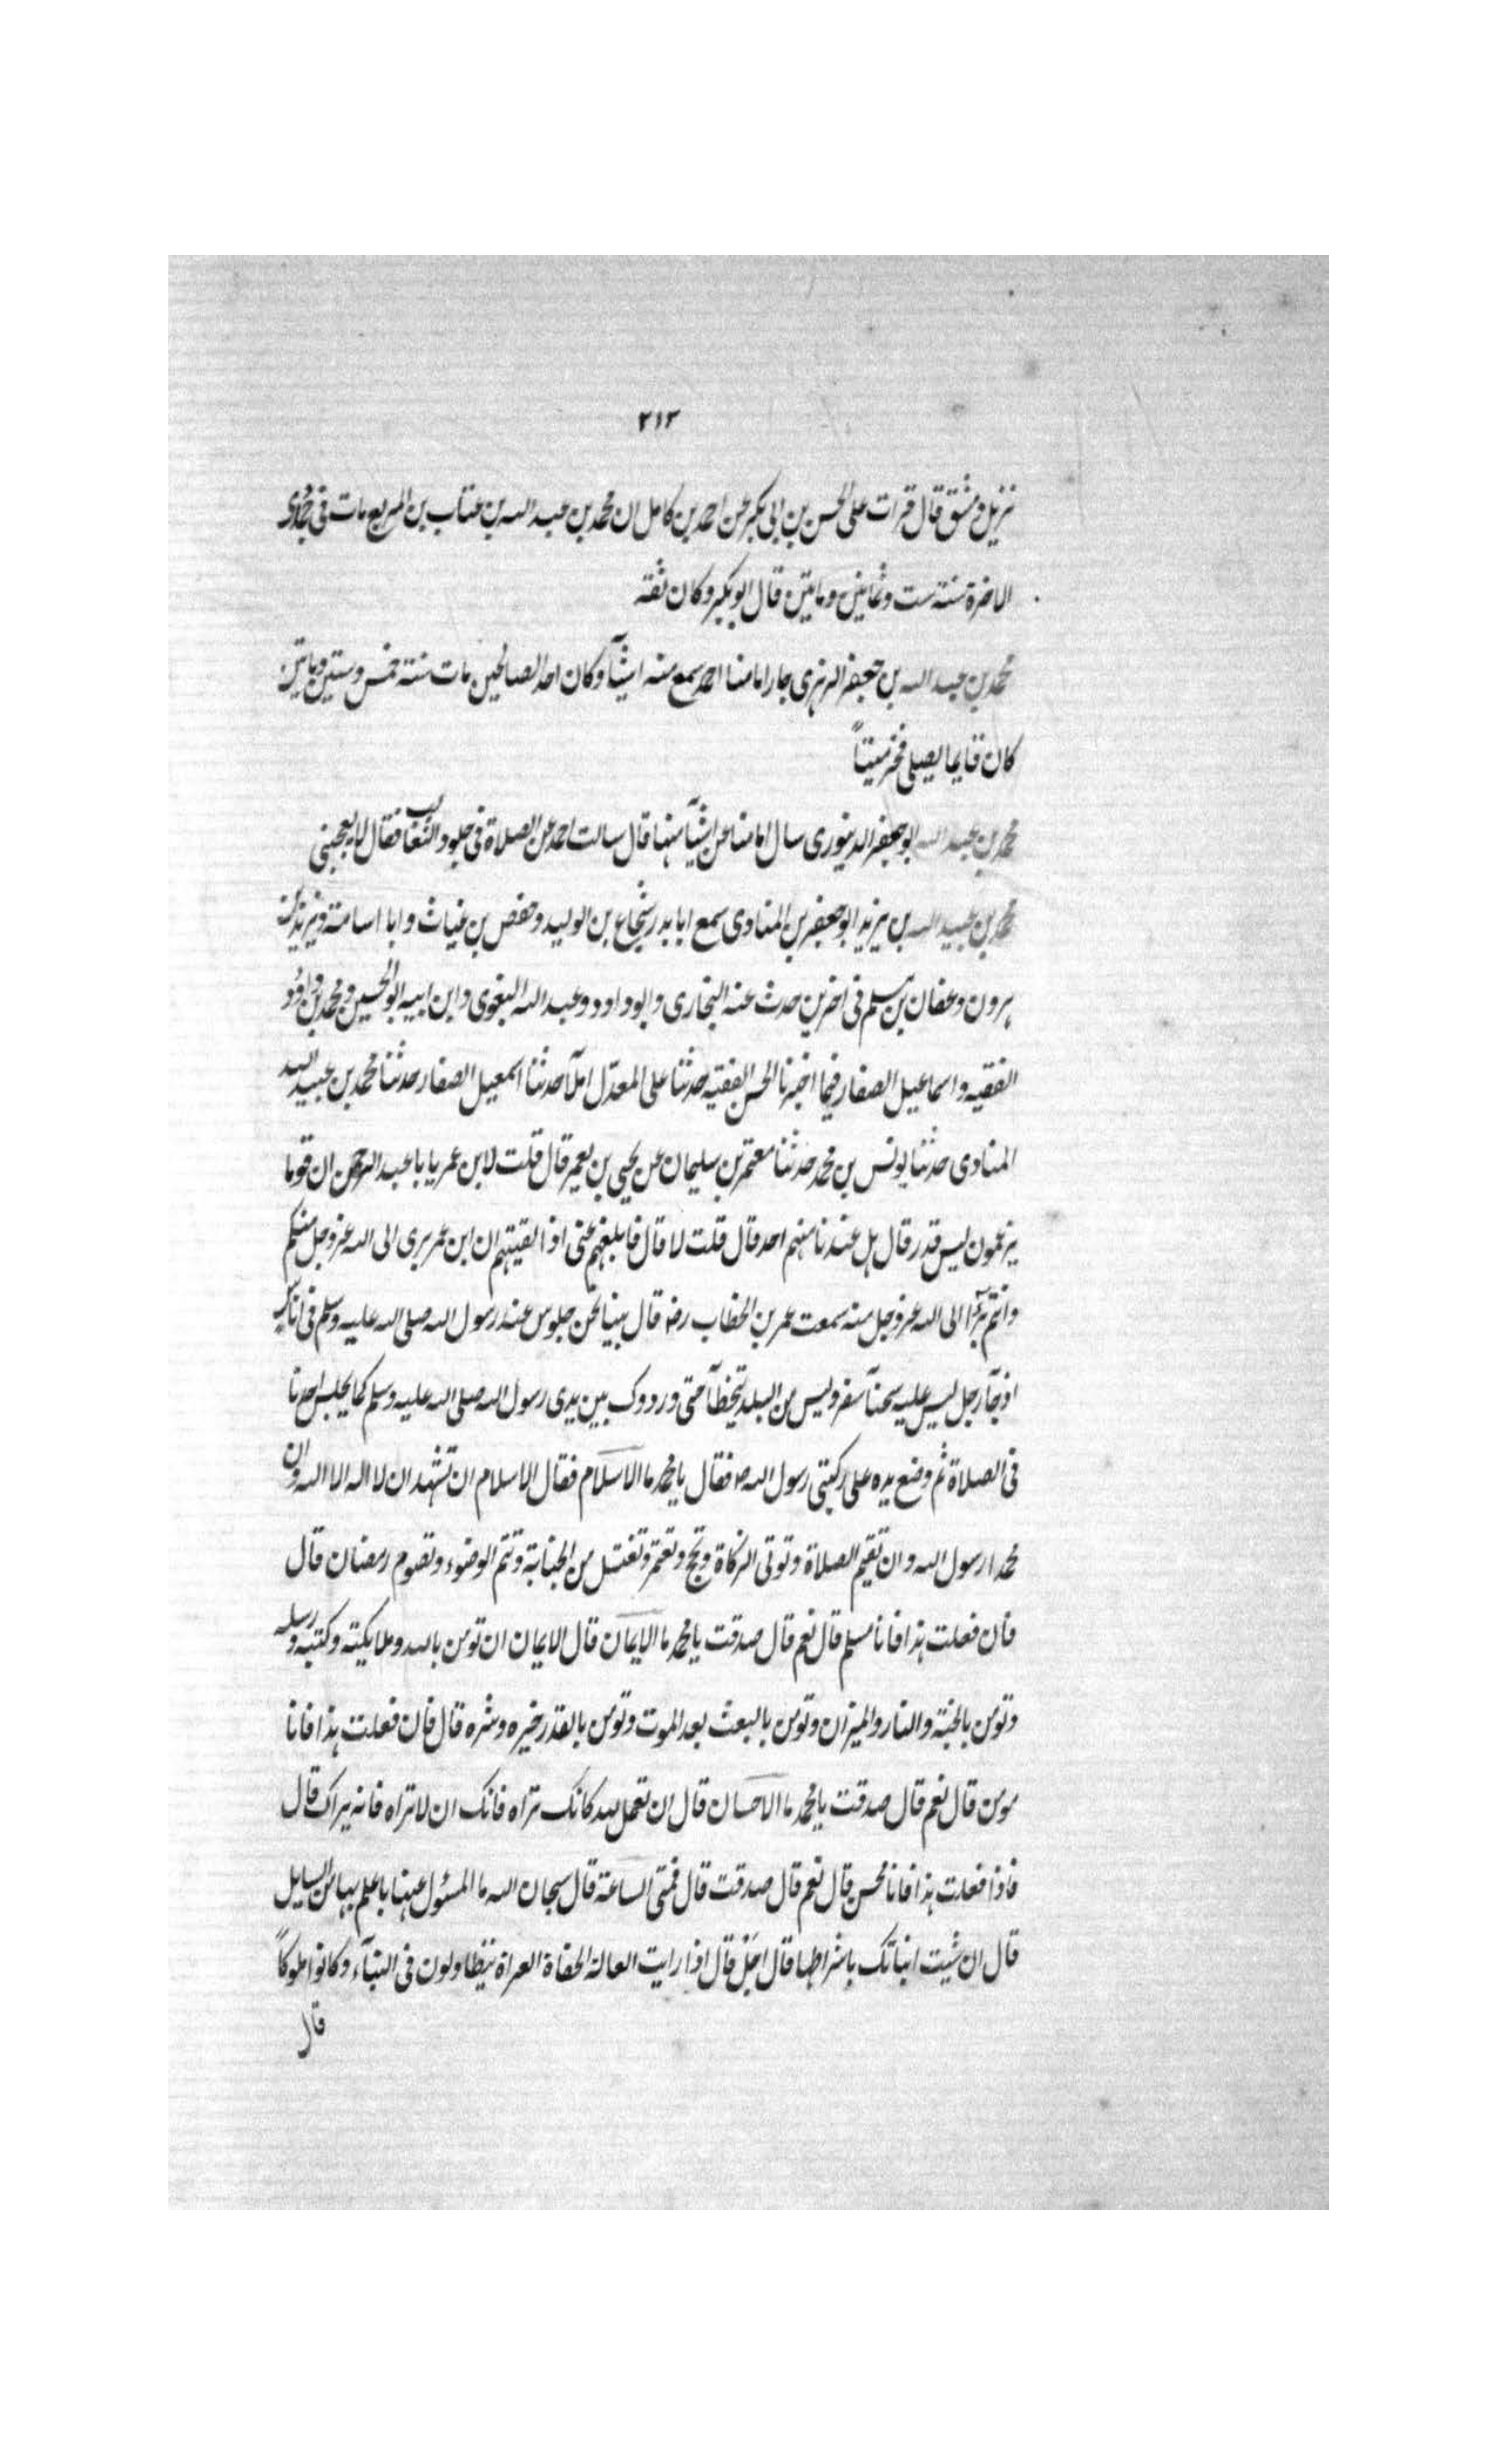 ٢١٢
نزيل دمشق قال قرات على الحسن بن ابى بكر عن احمد بن كامل ان محمد بن عبد الله بن عتاب بن المربع مات فى جمادى
الاخرة سنة ست وثمانين ومايتين قال ابو بكر وكان ثقة
محمد بن عبد الله بن جعفر الزهرى جار امامنا احمد سمع منه اشيآ وكان احد الصالحين مات سنة خمس وستين ومايتين
كان قايما يصلى فخر ميتاً
محمد بن عبد الله ابو جعفر الدينورى سال امامنا عن اشيآ منها قال سالت احمد عن الصلاة فى جلود الثعالب فقال لا يعجبنى
محمد بن عبيد الله بن يزيد ابو جعفر بن المنادى سمع ابا بدر شجاع بن الوليد وحفص بن غياث وابا اسامة ويزيد بن
هرون وعفان بن مسلم فى اخرين حدث عنه البخارى وابو داود وعبد الله البغوى وابن ابيه ابو الحسين ومحمد بن داود
الفقيه واسماعيل الصفار فيما اخبرنا الحسن الفقيه حدثنا على المعدّل املآ حدثنا اسمعيل الصفار حدثنا محمد بن عبيد الله
المنادى حدثنا يونس بن محمد حدثنا معتمر بن سليمان عن يحيى بن يعمر قال قلت لابن عمر يا با عبد الرحمن ان قوما
يزعمون ليس قدر قال هل عندنا منهم احد قال قلت لا قال فابلغهم عنى اذا لقيتهم ان ابن عمر برى الى الله عز وجل منكم
وانتم برآ الى الله عز وجل منه سمعت عمر بن الخطاب رضه قال بينا نحن جلوس عند رسول الله صلى الله عليه وسلم فى اناس
اذ جآ رجل ليس عليه سحنآ سفر وليس من البلد يتخطآ حتى ورد وك بين يدى رسول الله صلى الله عليه وسلم كما يجلس احدنا
فى الصلاة ثم وضع يده على ركبتى رسول الله ص فقال يا محمد ما الاسلام فقال الاسلام ان تشهد ان لا اله الا الله وان
محمدا رسول الله وان تقيم الصلاة وتوتى الزكاة وتحج وتعتمر وتغتسل من الجنابة وتتم الوضوء وتصوم رمضان قال
فان فعلت هذا فانا مسلم قال نعم قال صدقت يا محمد ما الايمان قال الايمان ان تومن بالله وملايكته وكتبه ورسله
وتومن بالجنة والنار والميزان وتومن بالبعث بعد الموت وتومن بالقدر خيره وشره قال فان فعلت هذا فانا
مومن قال نعم قال صدقت يا محمد ما الاحسان قال ان تعمل لله كانك تراه فانك ان لا تراه فانه يراك قال
فاذا فعلت هذا فانا محسن قال نعم قال صدقت قال فمتى الساعة قال سبحان الله ما المسئول عنها باعلم بها من السايل
قال ان شيت انباتك باشراطها قال اجل قال اذا رايت العالة الحفاة العراة يتطاولون فى البنآء وكانوا ملوكاً
قال